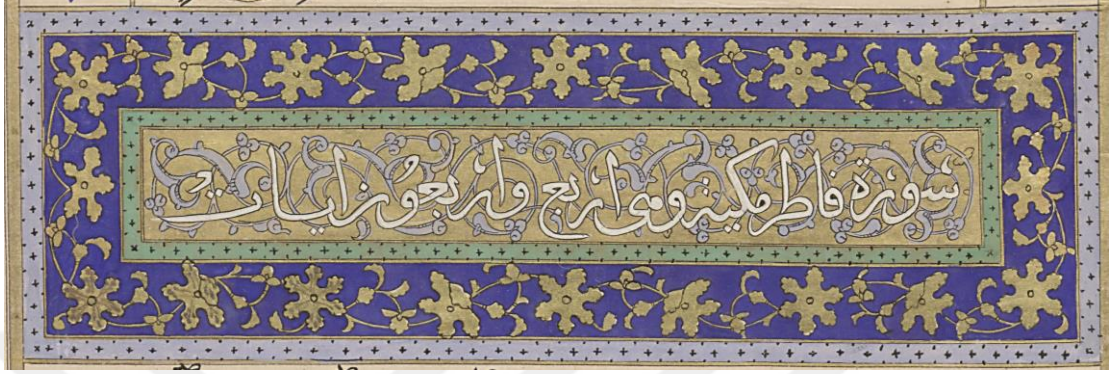 سورة فاطر مكية وهى اربع واربعون ايات